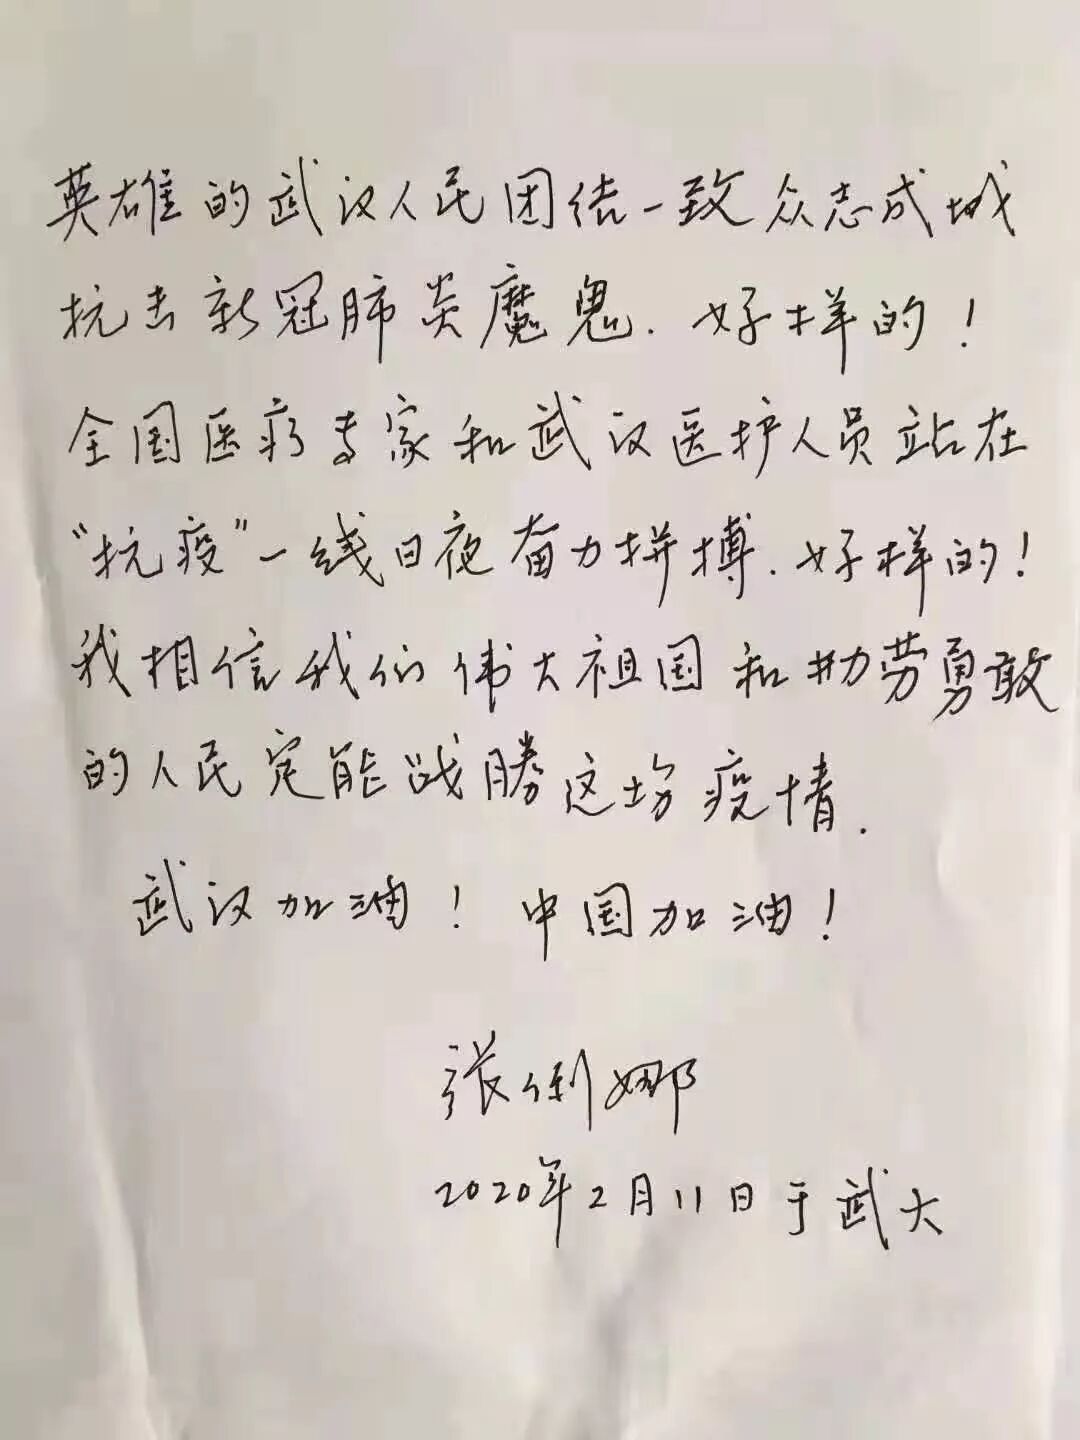 英雄的武汉人民团结一致众志成城
抗击新冠肺炎魔鬼.好样的!
全国医疗专家和武汉医护人员站在
“抗疫”一线日夜奋力拼搏.好样的!
我相信我们伟大祖国和勤劳勇敢
的人民定能战勝这场疫情.
武汉加油!中国加油!
张俐娜
2020年2月11日于武大